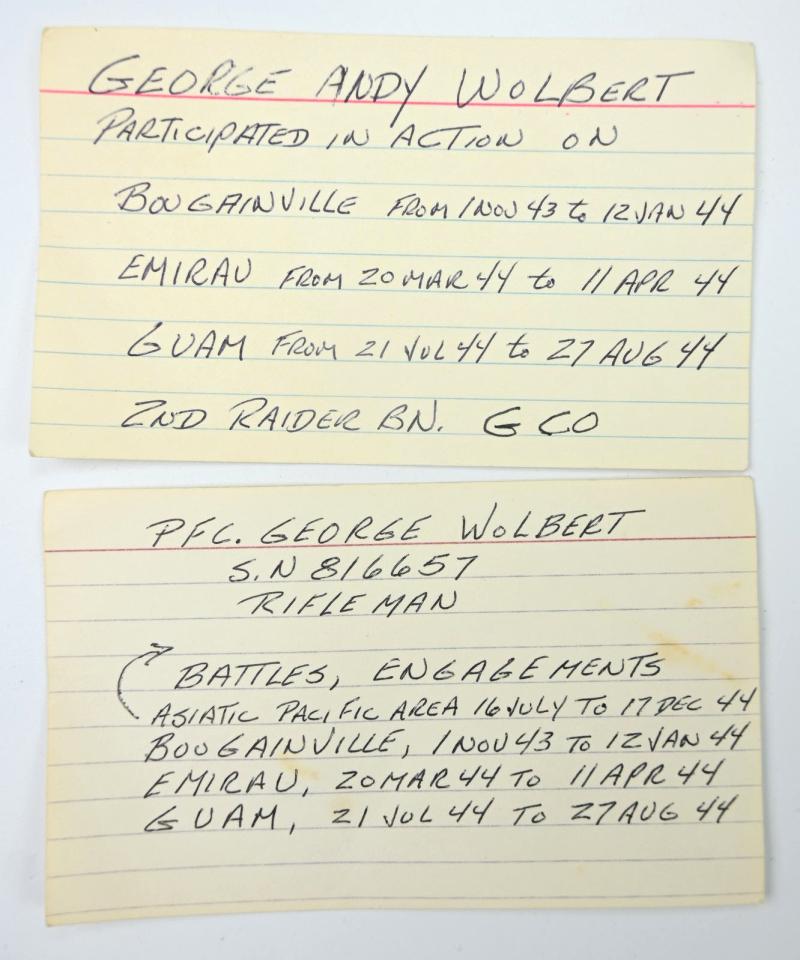 GEORGE ANDY WOLBERT
PARTICIPATED IN ACTION ON
BOUGAINVILLE FROM 1 NOV 43 to 12 JAN 44
EMIRAU FROM 20 MAR 44 to 11 APR 44
GUAM FROM 21 JUL 44 to 27 AUG 44
2ND RAIDER BN. G CO
PFC. GEORGE WOLBERT
S.N 816657
RIFLEMAN
BATTLES, ENGAGEMENTS
ASIATIC PACIFIC AREA 16 JULY TO 17 DEC 44
BOUGAINVILLE, 1 NOV 43 TO 12 JAN 44
EMIRAU, 20 MAR 44 TO 11 APR 44
GUAM, 21 JUL 44 TO 27 AUG 44